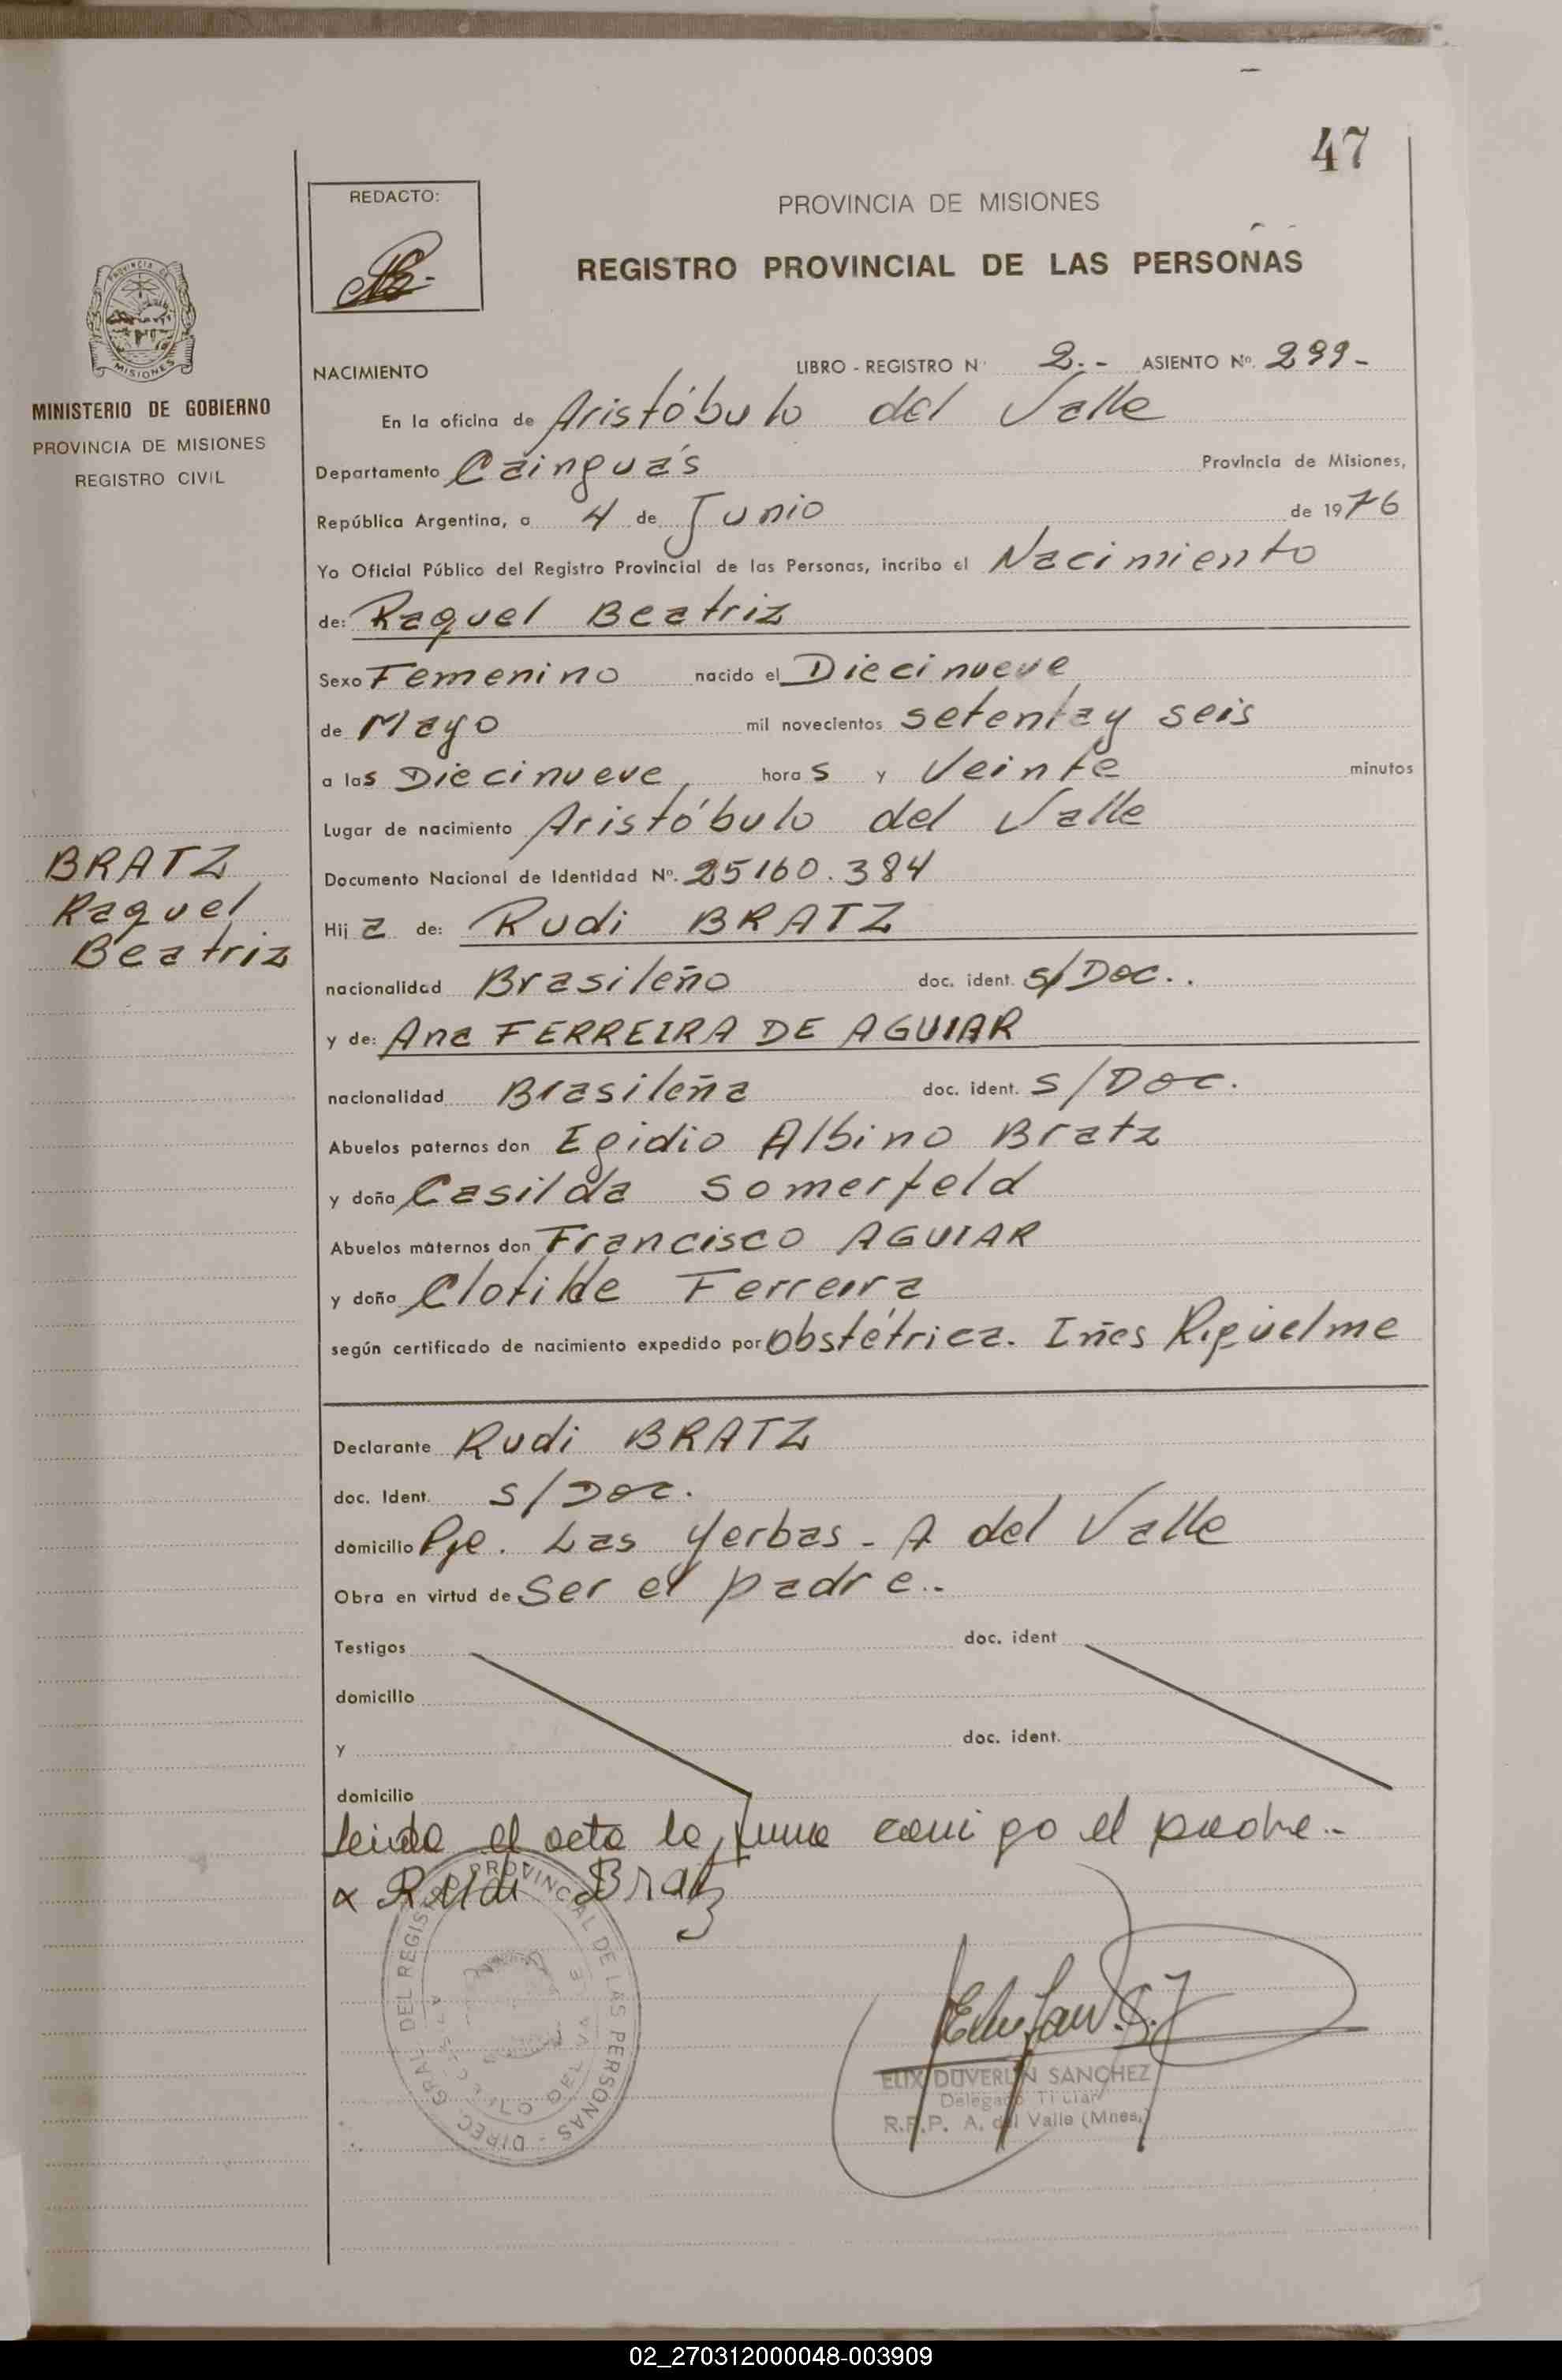 47
REDACTO:
PROVINCIA DE MISIONES
REGISTRO PROVINCIAL DE LAS PERSONAS
PROVINCIA DE
MISIONES
MINISTERIO DE GOBIERNO
PROVINCIA DE MISIONES
REGISTRO CIVIL
NACIMIENTO LIBRO - REGISTRO N° 2.- ASIENTO Nº. 299-
En la oficina de Aristóbulo del Valle
Departamento Cainguás Provincia de Misiones,
República Argentina, a 4 de Junio de 1976
Yo Oficial Público del Registro Provincial de las Personas, incribo el Nacimiento
de: Raquel Beatriz
Sexo Femenino nacido el Diecinueve
de Mayo mil novecientos setenta y seis
a las Diecinueve, horas y Veinte minutos
Lugar de nacimiento Aristóbulo del Valle
BRATZ
Raquel
Beatriz
Documento Nacional de Identidad Nº. 25160.384
Hija de: Rudi BRATZ
nacionalidad Brasileño doc. ident. S/Doc..
y de: Ana FERREIRA DE AGUIAR
nacionalidad Brasileña doc. ident. S/Doc.
Abuelos paternos don Egidio Albino Bratz
y doña Casilda Somerfeld
Abuelos maternos don Francisco AGUIAR
y doña Clotilde Ferreira
según certificado de nacimiento expedido por Obstétrica. Iñes Riqüelme
Declarante Rudi BRATZ
doc. Ident. S/Doc.
domicilio Pje. Las Yerbas - A del Valle
Obra en virtud de Ser el padre..
Testigos doc. ident
domicilio
y doc. ident.
domicilio
Leida el acta la firma conmigo el padre.-
x Rudi Bratz
DIREC. GRAL. DEL REGISTRO PROVINCIAL DE LAS PERSONAS
ELIX DUVERLIN SANCHEZ
Delegado Titular
R.P.P. A. del Valle (Mnes.)
02_270312000048-003909